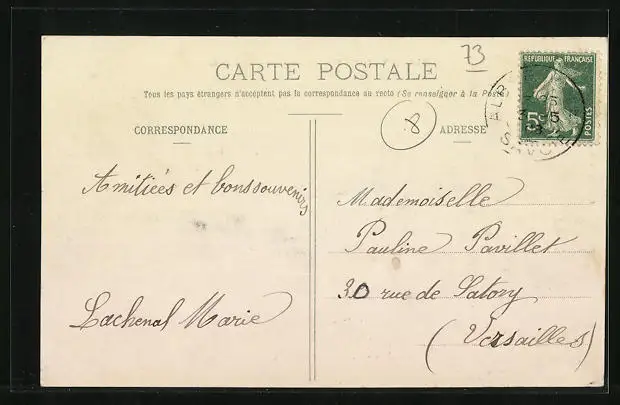 73
CARTE POSTALE
Tous les pays étrangers n'acceptent pas la correspondance au recto (Se renseigner à la Poste)
8
CORRESPONDANCE
ADRESSE
RÉPUBLIQUE FRANÇAISE
5c
POSTES
SAVOIE
Amitiées et bons souvenirs
Lachenal Marie
Mademoiselle
Pauline Pavillet
30 rue de Satory
(Versailles)